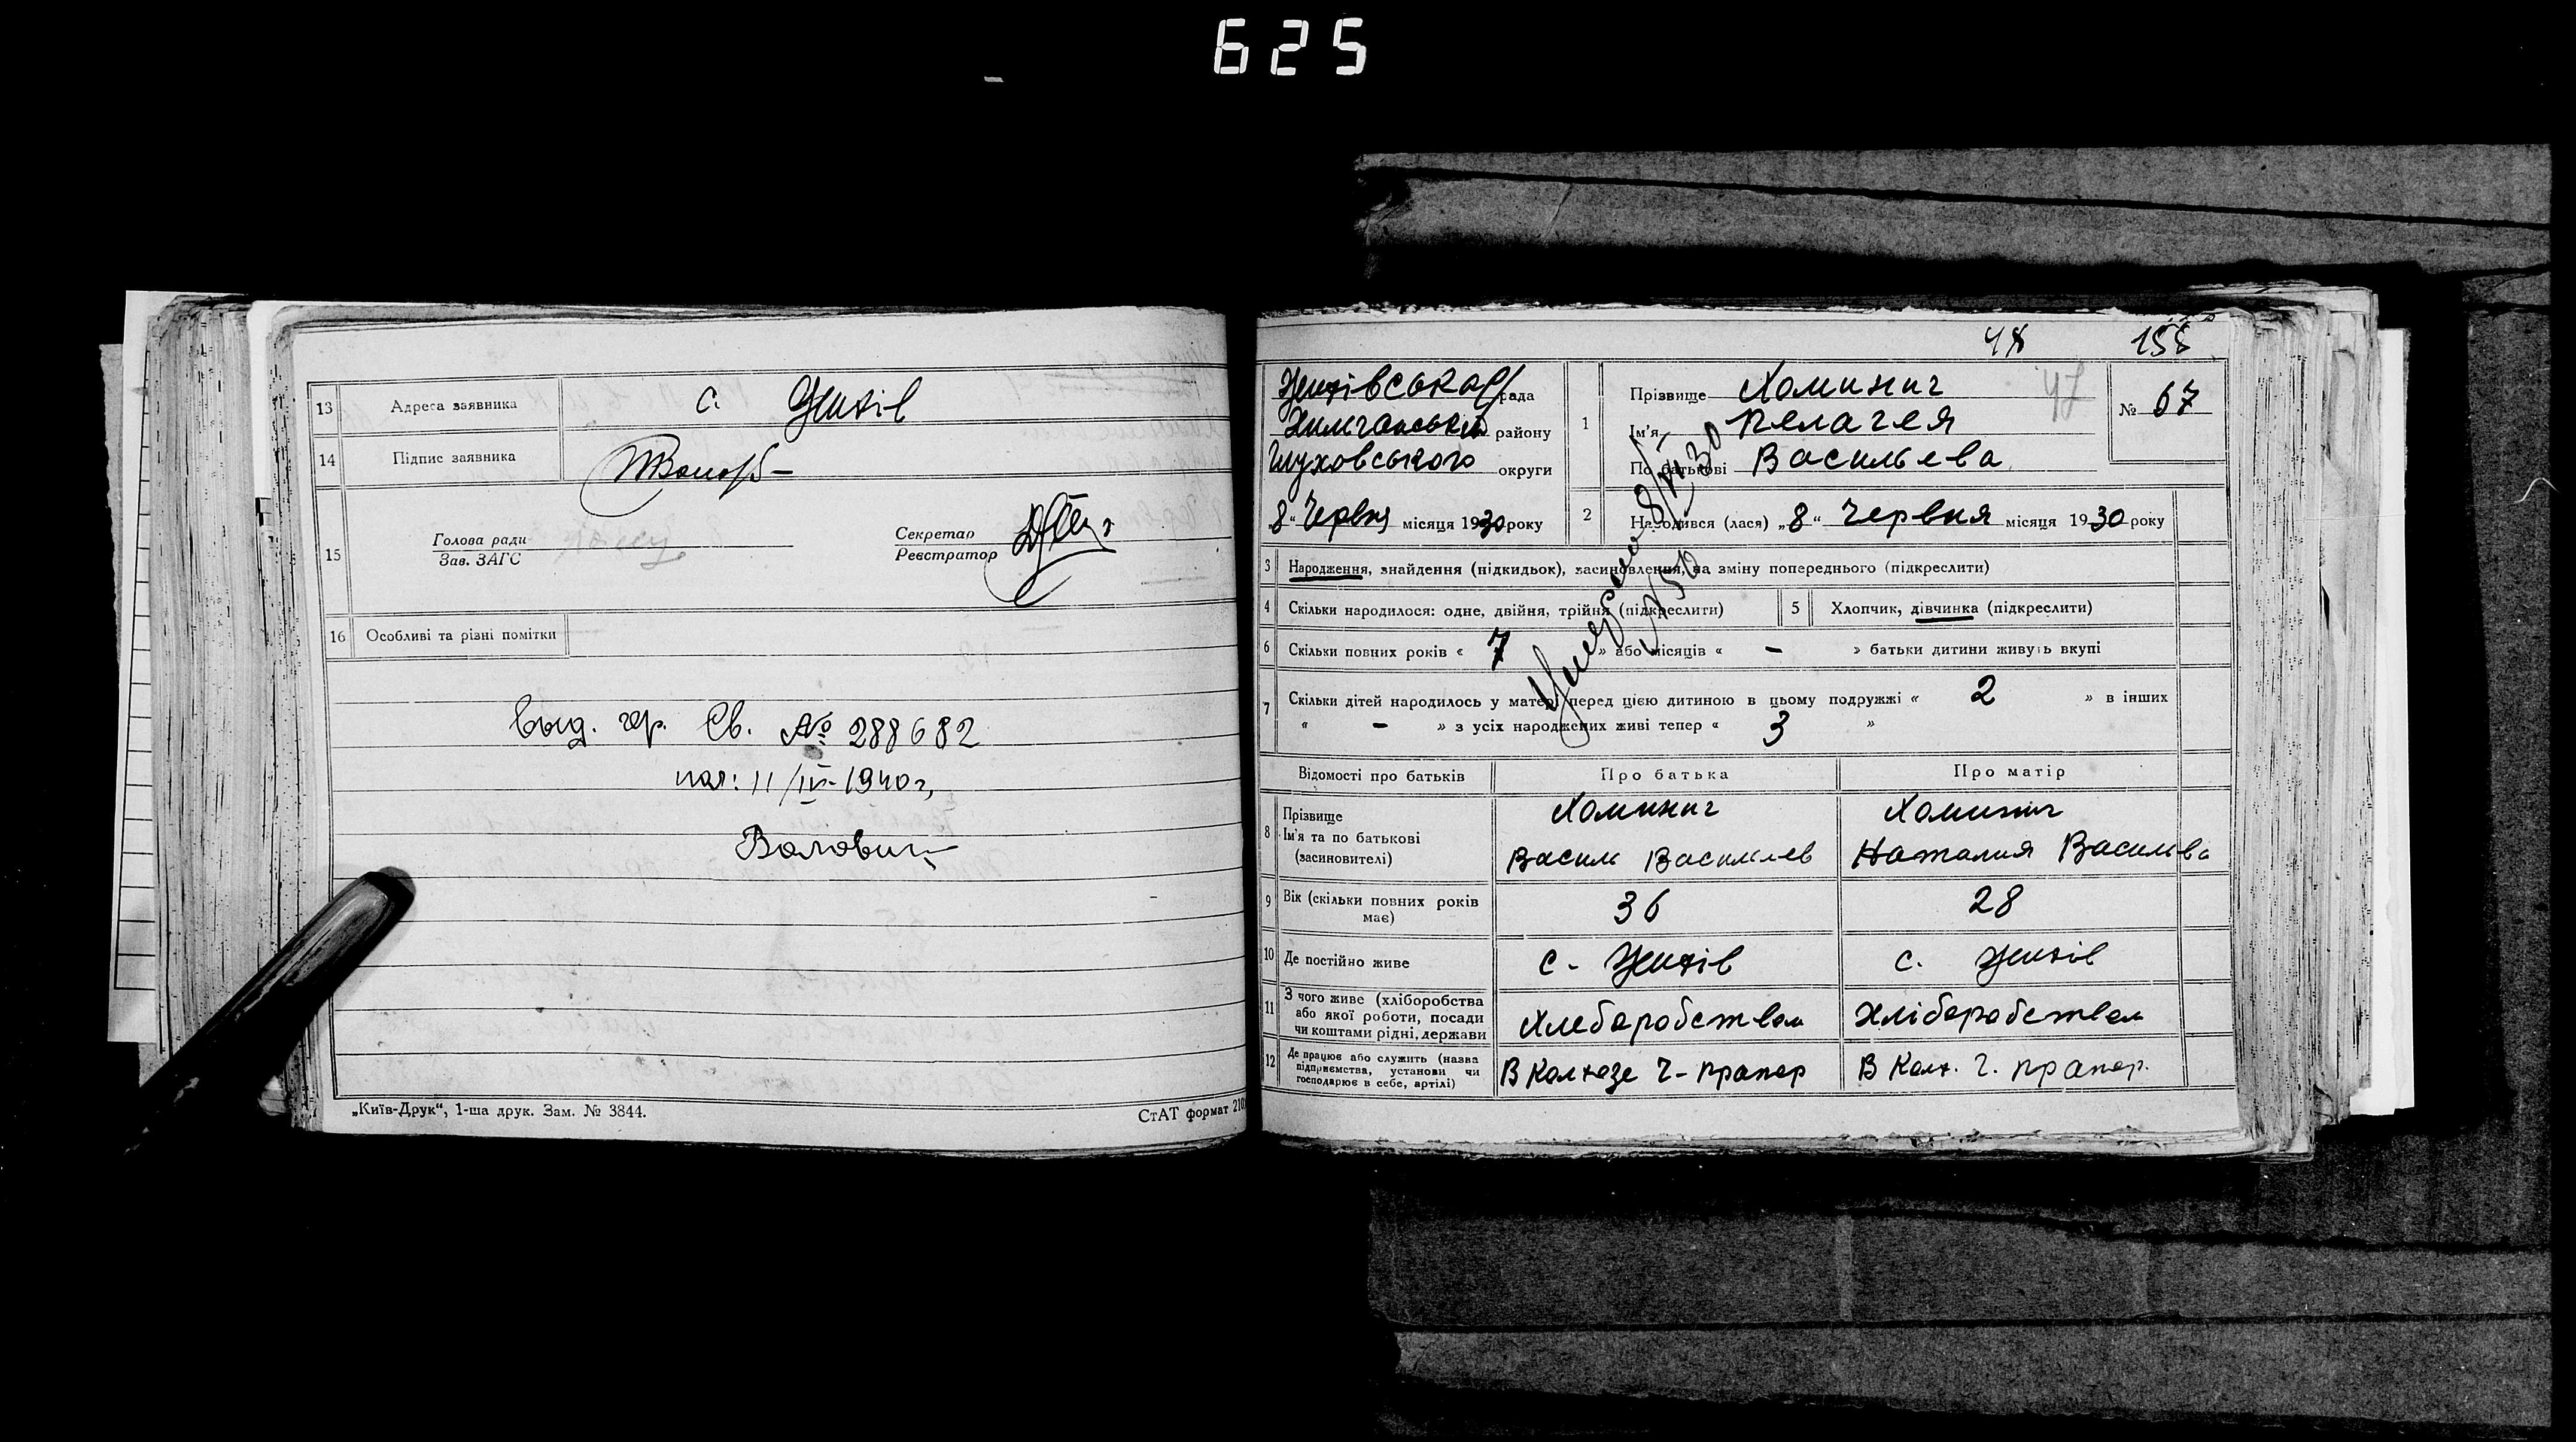 625
13 Адреса заявника с. Жихів
14 Підпис заявника
15 Голова ради
Зав. ЗАГС
Секретар
Реєстратор
16 Особливі та різні помітки
выд. гр. Св. № 288682
пол: 11/IV-1940 г,
„Київ-Друк“, 1-ша друк. Зам. № 3844.
СтАТ формат 210
48 158
Жихівська с/рада
Хильчанський району
Глуховського округи
„8“ Червня місяця 1930 року
1 Прізвище Хоминич 47
Ім'я Пелагея
По батькові Васильева
№ 67
2 Народився (лася) „8“ Червня місяця 1930 року
3 Народження, знайдення (підкидьок), засиновлення, на зміну попереднього (підкреслити)
4 Скільки народилося: одне, двійня, трійня (підкреслити) 5 Хлопчик, дівчинка (підкреслити)
6 Скільки повних років « 7 » або місяців « - » батьки дитини живуть вкупі
7 Скільки дітей народилось у матері перед цією дитиною в цьому подружжі « 2 » в інших
« - » з усіх народжених живі тепер « 3 »
Відомості про батьків Про батька Про матір
8 Прізвище Хоминич Хоминич
Ім'я та по батькові Василь Васильев Наталия Васильва
(засиновителі)
9 Вік (скільки повних років має) 36 28
10 Де постійно живе с. Жихів с. Жихів
11 З чого живе (хліборобства
або якої роботи, посади Хлеборобством Хліборобством
чи коштами рідні, держави
12 Де працює або служить (назва
підприємства, установи чи В Колхозе Ч-Прапор В Колх. Ч. Прапор.
господарює в себе, артілі)